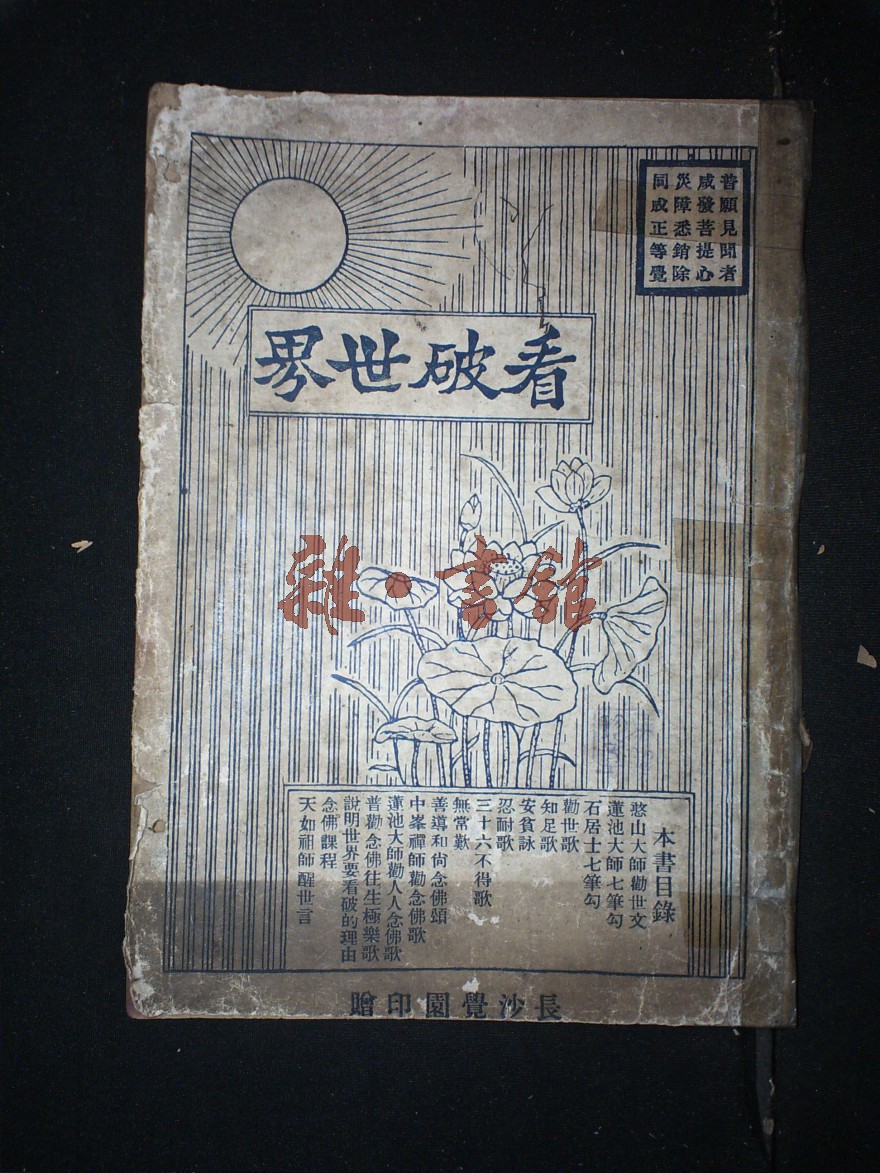 普願見聞者
咸發菩提心
災障悉銷除
同成正等覺
看破世界
雜·書館
本書目錄
憨山大師勸世文
蓮池大師七筆勾
石居士七筆勾
勸世歌
知足歌
安貧詠
忍耐歌
三十六不得歌
無常歎
善導和尙念佛頌
中峯禪師勸念佛歌
蓮池大師勸人人念佛歌
普勸念佛往生極樂歌
說明世界要看破的理由
念佛課程
天如祖師醒世言
長沙覺園印贈